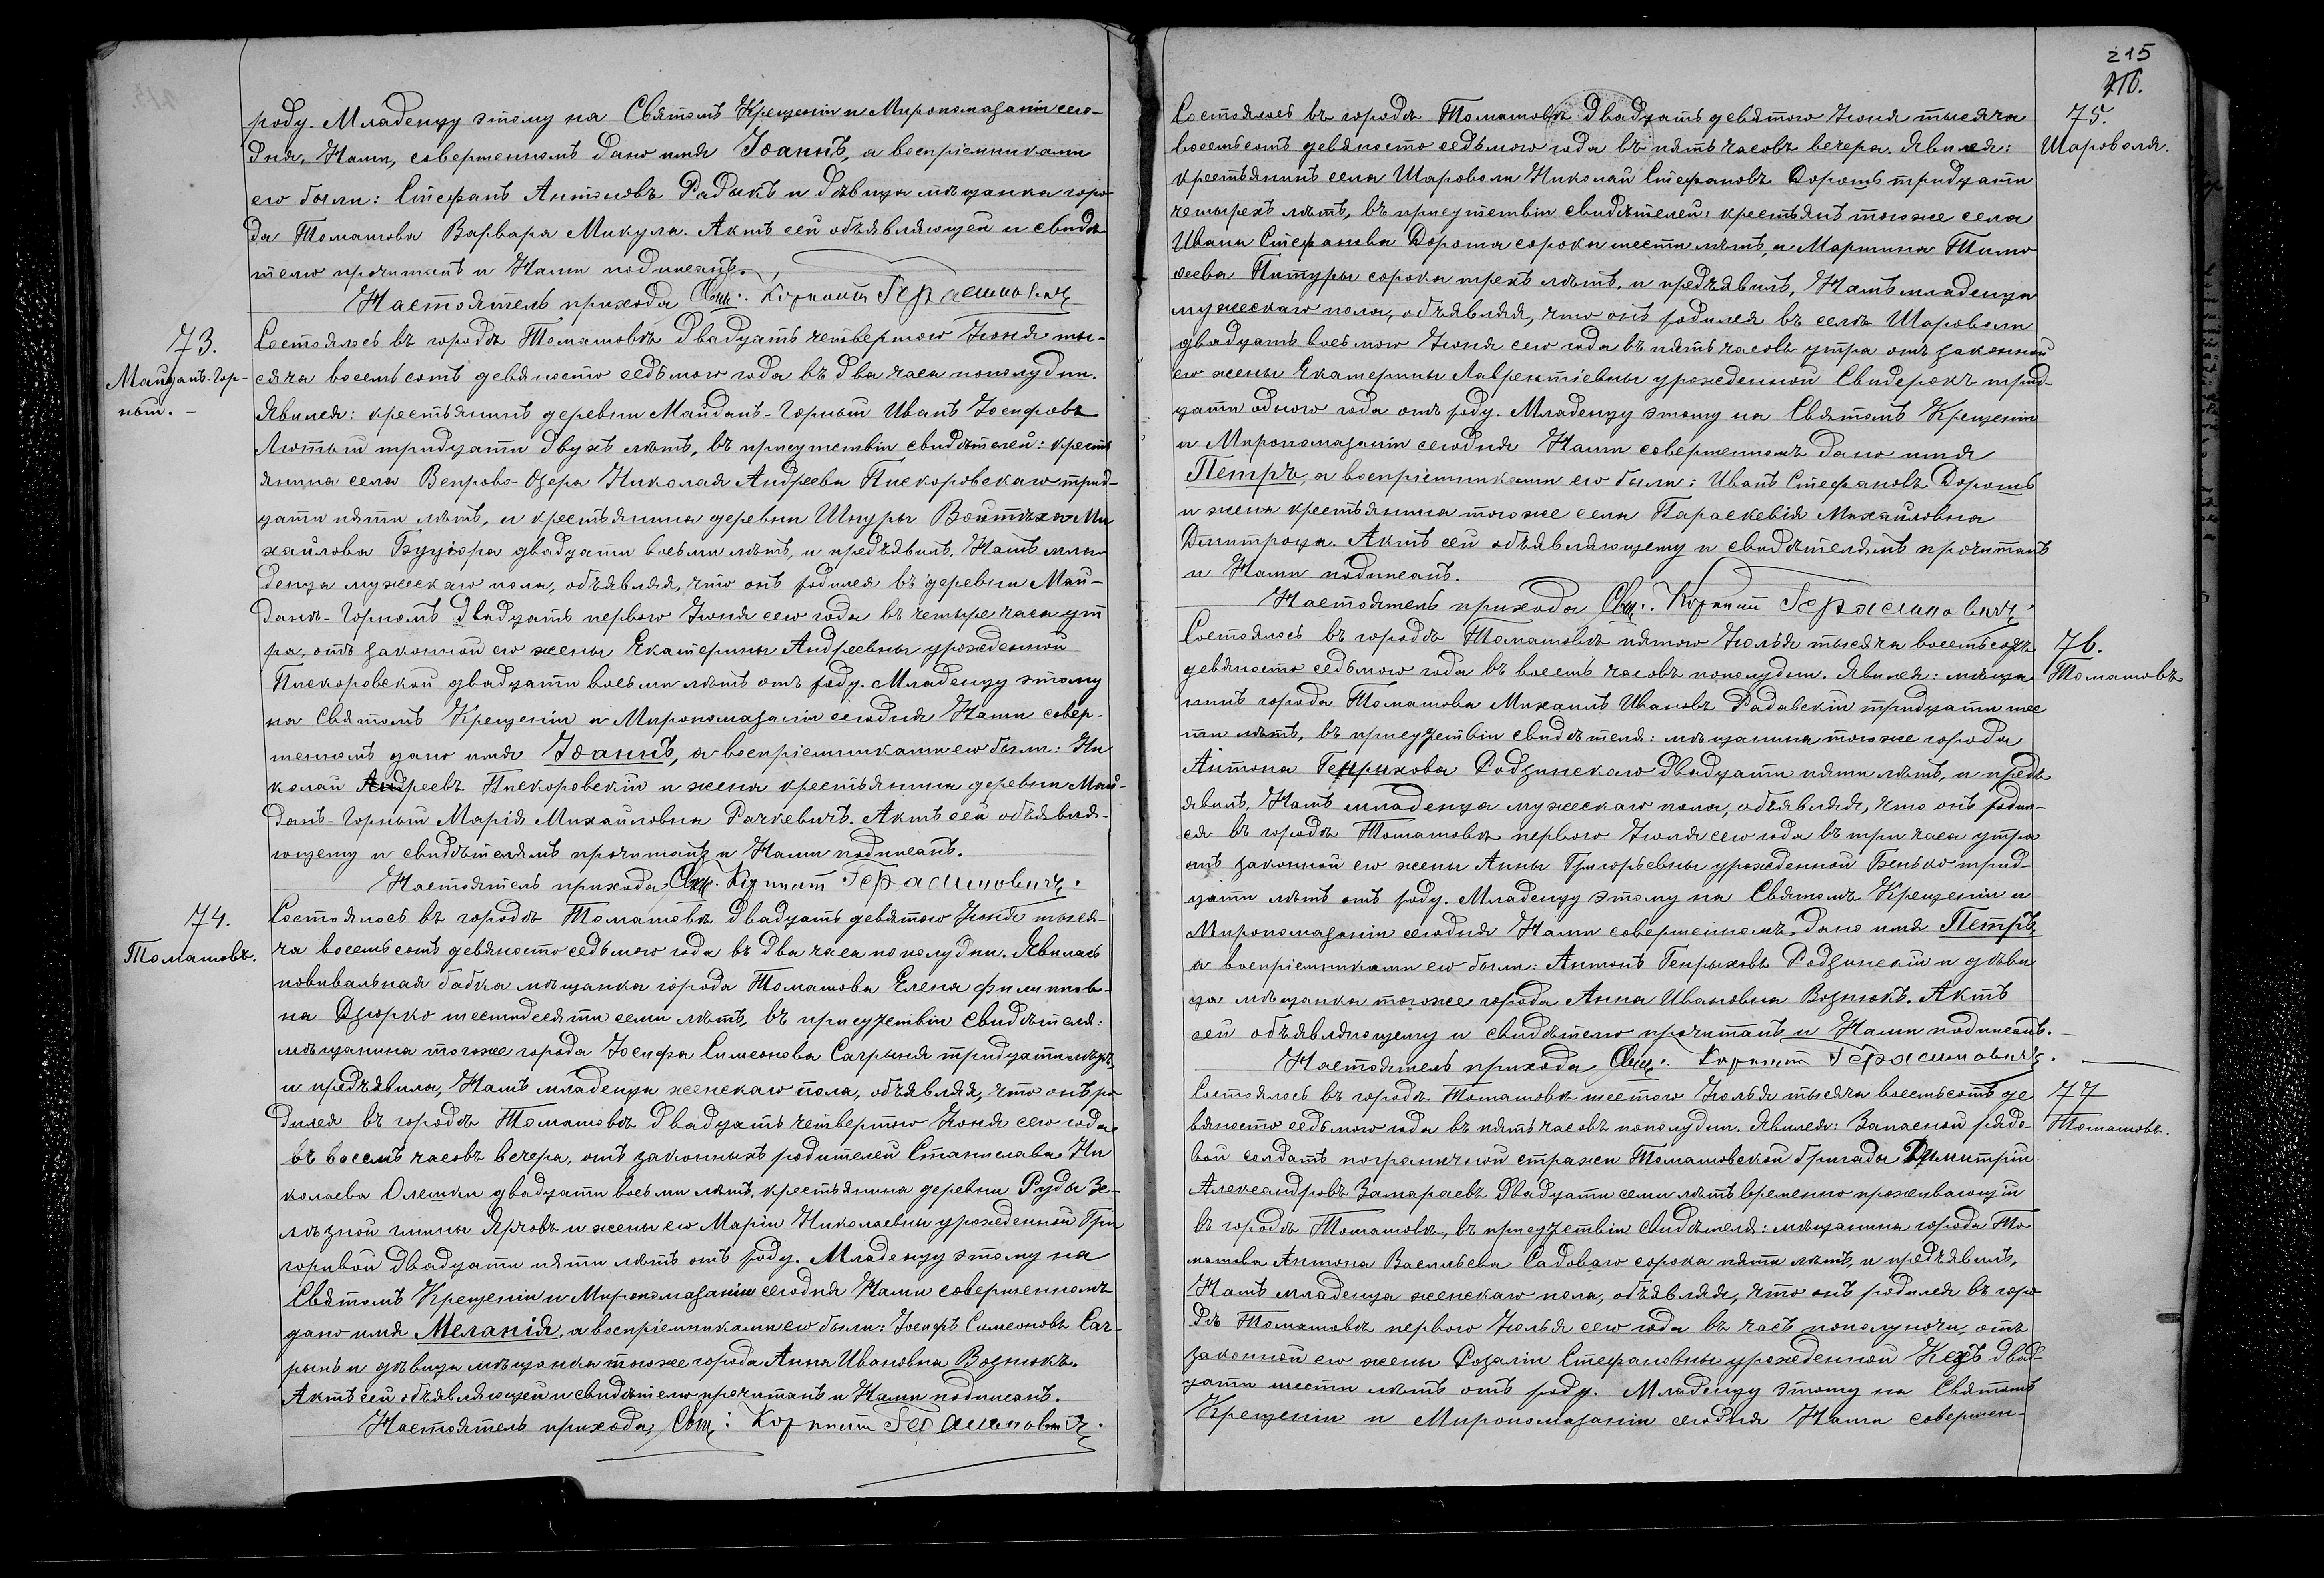 роду. Младенцу этому на Святомъ Крещеніи и Миропомазаніи сего-
дня, Нами, совершенномъ дано имя Іоаннъ, а воспріемниками
его были: Стефанъ Антоновъ Радыкъ и дѣвица мѣщанка горо
да Томашова Варвара Микула. Актъ сей объявляющей и свидѣ-
телю прочитанъ и Нами подписанъ.
Настоятель прихода Свщ: Корнилій Герасимовичъ
73.
Майданъ-Гор-
ный. –
Состоялось въ городѣ Томашовѣ двадцать четвертого Іюня ты-
сяча восемьсотъ девяносто седьмого года въ два часа пополудни.
Явился: крестьянинъ деревни Майданъ-Горный Иванъ Іосифовъ
Лютый тридцати двухъ лѣтъ, въ присутствіи свидѣтелей: кресть
янина села Вепрово-Озера Николая Андреева Пискоровскаго трид-
цати пяти лѣтъ, и крестьянина деревни Шнуры Войтѣха Ми
хайлова Буціора двадцати восьми лѣтъ, и предъявилъ, Намъ мла-
денца мужескаго пола, объявляя, что онъ родился въ деревни Май-
данѣ-Горномъ двадцать первого Іюня сего года въ четыре часа ут
ра, отъ законной его жены Екатерины Андреевны урожденной
Пискоровской двадцати восьми лѣтъ отъ роду. Младенцу этому
на Святомъ Крещеніи и Миропомазаніи сегодня Нами совер-
шенномъ дано имя Іоаннъ, а воспріемниками его были: Ни
колай Андреевъ Пискоровскій и жена крестьянина деревни Май-
данъ-Горный Марія Михайловна Рачкевичъ. Актъ сей объявля-
ющему и свидѣтелямъ прочитанъ и Нами подписанъ.
Настоятель прихода Свщ: Корнилій Герасимовичъ.
74.
Томашовъ.
Состоялось въ городѣ Томашовѣ двадцать девятого Іюня тыся-
ча восемьсотъ девяносто седьмого года въ два часа пополудни. Явилась
повивальная бабка мѣщанка города Томашова Елена Филиппов-
на Дзюрко шестидесяти семи лѣтъ, въ присутствіи свидѣтеля:
мѣщанина тогоже города Іосифа Симеонова Сагрыня тридцати лѣтъ,
и предъявила, Намъ младенца женскаго пола, объявляя, что онъ ро
дился въ городѣ Томашовѣ двадцать четвертого Іюня сего года
въ восемь часовъ вечера, отъ законныхъ родителей Станислава Ни
колаева Олешки двадцати восьми лѣтъ, крестьянина деревни Руды Же-
лѣзной гмины Ярчовъ и жены его Маріи Николаевны урожденной Гри
горивой двадцати пяти лѣтъ отъ роду. Младенцу этому на
Святомъ Крещеніи и Миропомазаніи сегодня Нами совершенномъ
дано имя Меланія, а воспріемниками его были: Іосифъ Симеоновъ Саг-
рынь и дѣвица мѣщанка тогоже города Анна Ивановна Вознюкъ.
Актъ сей объявляющей и свидѣтелю прочитанъ и Нами подписанъ.
Настоятель прихода, Свщ: Корнилій Герасимовичъ.
215
216.
75.
Шароволя.
Состоялось въ городѣ Томашовѣ двадцать девятого Іюня тысяча
восемьсотъ девяносто седьмого года въ пять часовъ вечера. Явился:
крестьянинъ села Шароволи Николай Стефановъ Дорошъ тридцати
четырехъ лѣтъ, въ присутствіи свидѣтелей: крестьянъ тогоже села
Ивана Стефанова Дороша сорока шести лѣтъ, и Мартина Тимо
ѳеева Питуры сорока трехъ лѣтъ, и предъявилъ, Намъ младенца
мужескаго пола, объявляя, что онъ родился въ селѣ Шароволи
двадцать восьмого Іюня сего года въ пять часовъ утра отъ законной
его жены Екатерины Лаврентіевны урожденной Свидерокъ трид-
цати одного года отъ роду. Младенцу этому на Святомъ Крещеніи
и Миропомазаніи сегодня Нами совершенномъ дано имя
Петръ, а воспріемниками его были: Иванъ Стефановъ Дорошъ
и жена крестьянина тогоже села Параскевія Михайловна
Дмитроца. Актъ сей объявляющему и свидѣтелямъ прочитанъ
и Нами подписанъ.
Настоятель прихода Свщ: Корнилій Герасимовичъ.
76.
Томашовъ
Состоялось въ городѣ Томашовѣ пятого Іюлья тысяча восемьсотъ
девяносто седьмого года въ восемь часовъ пополудни. Явился: мѣща
нинъ города Томашова Михаилъ Ивановъ Радавскій тридцати шес
ти лѣтъ, въ присутствіи свидѣтеля: мѣщанина тогоже города
Антона Генрихова Родзинскаго двадцати пяти лѣтъ, и предъ
явилъ, Намъ младенца мужескаго пола, объявляя, что онъ родил-
ся въ городѣ Томашовѣ первого Іюля сего года въ три часа утра
отъ законной его жены Анны Григорьевны урожденной Бенько трид-
цати лѣтъ отъ роду. Младенцу этому на Святомъ Крещеніи и
Миропомазаніи сегодня Нами совершенномъ, дано имя Петръ
а воспріемниками его были: Антонъ Генрыховъ Родзинскій и дѣви
ца мѣщанка тогоже города Анна Ивановна Вознюкъ. Актъ
сей объявляющему и свидѣтелю прочитанъ и Нами подписанъ.
Настоятель прихода Свщ: Корнилій Герасимовичъ.
77
Томашовъ.
Состоялось въ городѣ Томашовѣ шестого Іюлья тысяча восемьсотъ де
вяносто седьмого года въ пять часовъ пополудни. Явился: Запасной рядо-
вой солдатъ пограничной стражи Томашовской бригады Димитрій
Александровъ Замараевъ двадцати семи лѣтъ временно проживающій
въ городѣ Томашовѣ, въ присутствіи свидѣтеля: мѣщанина города То
машова Антона Васильева Садоваго сорока пяти лѣтъ, и предъявилъ,
Намъ младенца женскаго пола, объявляя, что онъ родился въ горо
дѣ Томашовѣ первого Іюлья сего года въ часъ пополуночи, отъ
законной его жены Розаліи Стефановны урожденной двад-
цати шести лѣтъ отъ роду. Младенцу этому на Святомъ
Крещеніи и Миропомазаніи сегодня Нами совершен-